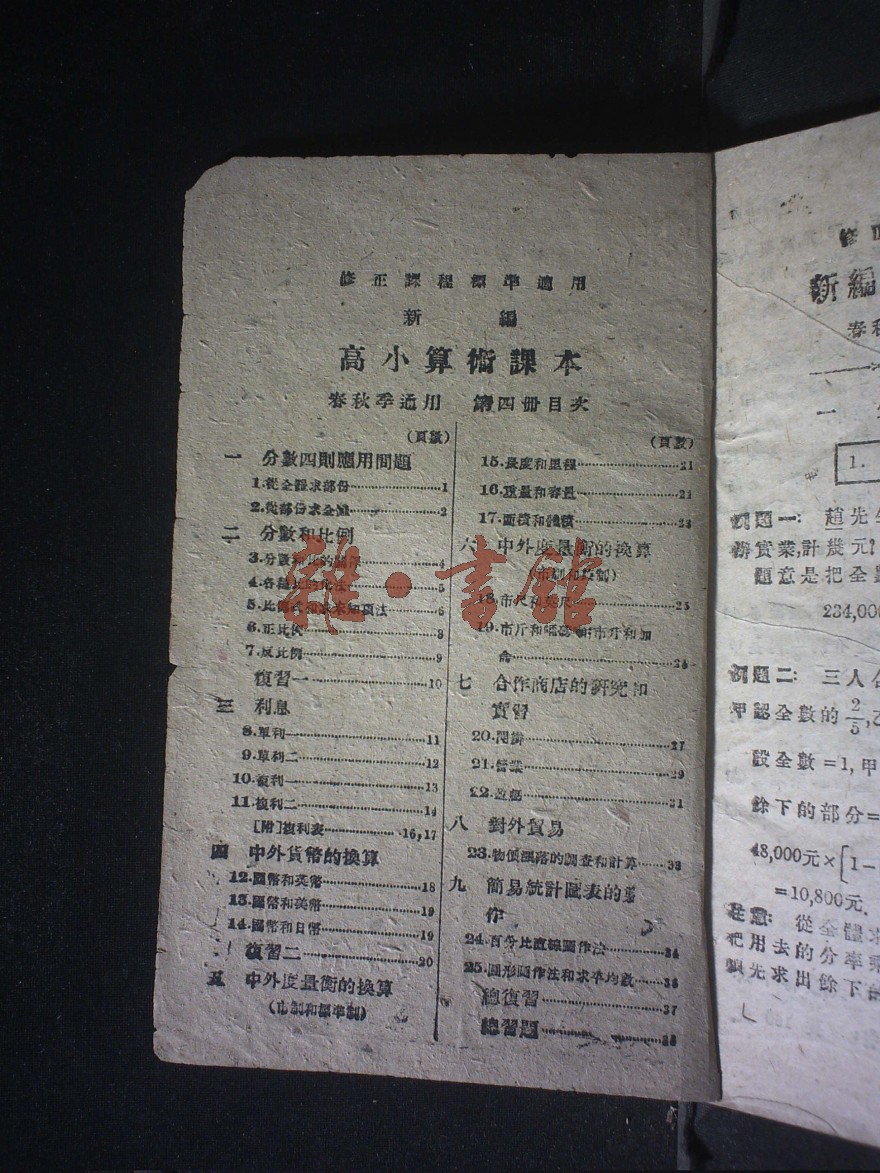 修正課程標準適用
新編
高小算術課本
春秋季通用 第四冊目次
(頁數)
一 分數四則應用問題
1.從全體求部份 1
2.從部份求全體 2
二 分數和比例
3.分數和比的關係 4
4.各種比的化法 5
5.比例式和求未知項法 6
6.正比例 8
7.反比例 9
復習一 10
三 利息
8.單利一 11
9.單利二 12
10.複利一 13
11.複利二 14
[附]複利表 16,17
四 中外貨幣的換算
12.國幣和英幣 18
13.國幣和美幣 19
14.國幣和日幣 19
復習二 20
五 中外度量衡的換算
(市制和標準制)
(頁數)
15.長度和里程 21
16.重量和容量
17.面積和體積 23
六 中外度量衡的換算
(市制和英制)
18.市尺和英尺 25
19.市斤和 市升和加
侖
七 合作商店的研究和
實習
20.開辦 27
21.營業 29
22. 31
八 對外貿易
23.物價漲落的調查和計算
九 簡易統計圖表的製
作
24.百分比直線圖作法 34
25.圓形圖作法和求平均數 36
總復習 37
總習題 38
修正
新編
春秋
一
1.
例題一: 趙先生
辦實業,計幾元?
題意是把全數
234,000
例題二: 三人合
甲認全數的2/5,乙
設全數=1,甲
餘下的部分=
48,000元×[1-
=10,800元.
注意: 從全體求
把用去的分率乘
須先求出餘下的